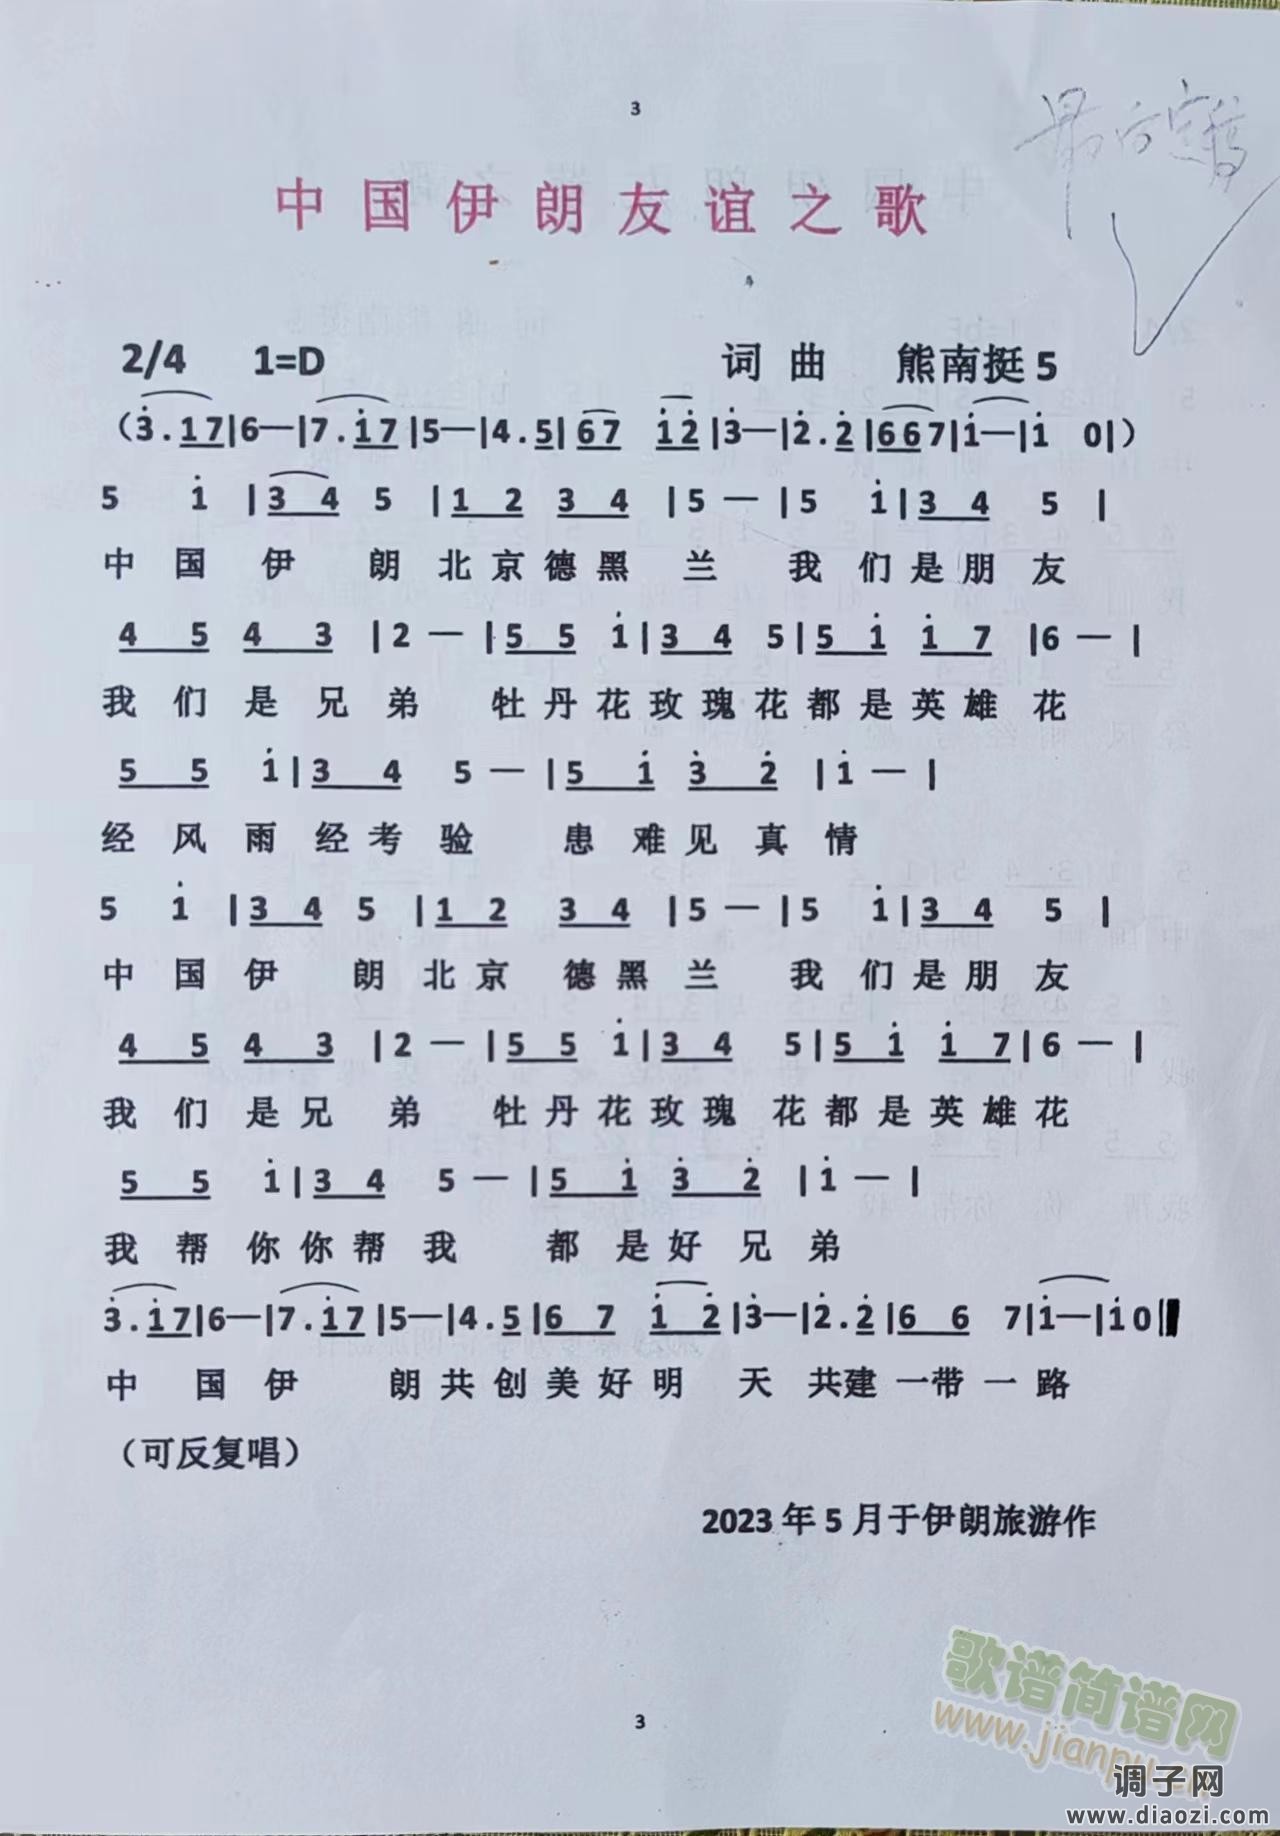 3
最后定稿
中国伊朗友谊之歌
2/4 1=D 词曲 熊南挺 5
（3̇.1̇7|6—|7.1̇7|5—|4.5|67 1̇2̇|3̇—|2̇.2̇|667|1̇—|1̇ 0|）
5 1̇ |3 4 5 |1 2 3 4 |5 — |5 1̇|3 4 5 |
中国伊朗北京德黑兰 我们是朋友
4 5 4 3 |2 — |5 5 1̇|3 4 5|5 1̇ 1̇ 7 |6 — |
我们是兄弟 牡丹花玫瑰花都是英雄花
5 5 1̇|3 4 5 — |5 1̇ 3̇ 2̇ |1̇ — |
经风雨经考验 患难见真情
5 1̇ |3 4 5 |1 2 3 4 |5 — |5 1̇|3 4 5 |
中国伊朗北京德黑兰 我们是朋友
4 5 4 3 |2 — |5 5 1̇|3 4 5|5 1̇ 1̇ 7|6 — |
我们是兄弟 牡丹花玫瑰花都是英雄花
5 5 1̇|3 4 5 — |5 1̇ 3̇ 2̇ |1̇ — |
我帮你你帮我 都是好兄弟
3̇.1̇7|6—|7.1̇7|5—|4.5|6 7 1̇ 2̇|3̇—|2̇.2̇|6 6 7|1̇—|1̇0‖
中国伊朗共创美好明天 共建一带一路
（可反复唱）
2023年5月于伊朗旅游作
3
歌谱简谱网
www.jianpu.cn
调子网
www.diaozi.com